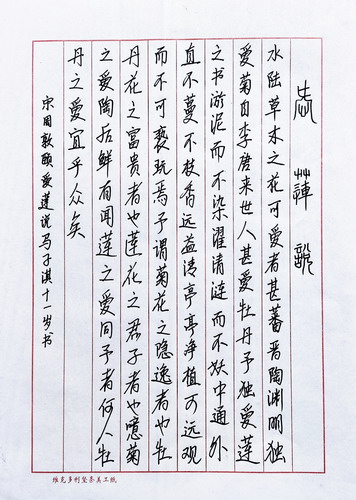 愛蓮說
水陆草木之花可爱者甚蕃晋陶渊明独
爱菊自李唐来世人甚爱牡丹予独爱莲
之出淤泥而不染濯清涟而不妖中通外
直不蔓不枝香远益清亭亭净植可远观
而不可亵玩焉予谓菊花之隐逸者也牡
丹花之富贵者也莲花之君子者也噫菊
之爱陶后鲜有闻莲之爱同予者何人牡
丹之爱宜乎众矣
宋周敦颐爱莲说马子淇十一岁书
维克多利竖条美工纸